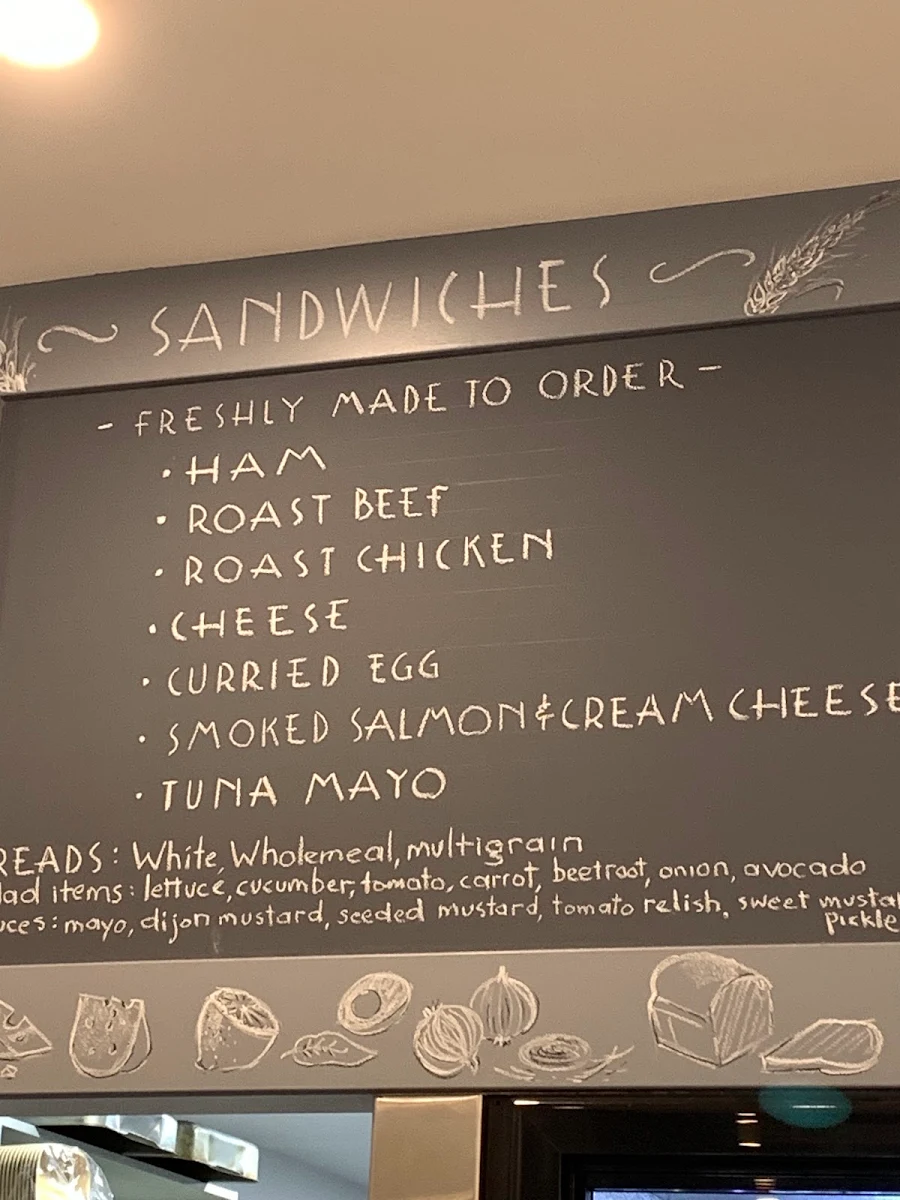 SANDWICHES
- FRESHLY MADE TO ORDER -
• HAM
• ROAST BEEF
• ROAST CHICKEN
• CHEESE
• CURRIED EGG
• SMOKED SALMON & CREAM CHEESE
• TUNA MAYO
READS: White, Wholemeal, multigrain
lad items: lettuce, cucumber, tomato, carrot, beetroot, onion, avocado
uces: mayo, dijon mustard, seeded mustard, tomato relish, sweet musta
Pickle